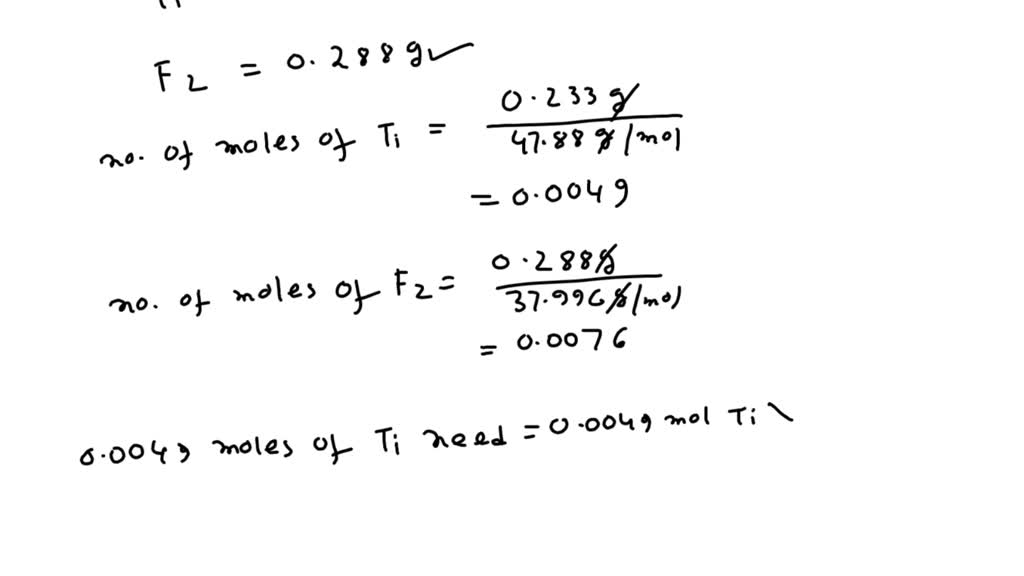 F2 = 0.288 g
no. of moles of Ti = 0.233 g / 47.88 g/mol
= 0.0049
no. of moles of F2 = 0.288 g / 37.996 g/mol
= 0.0076
0.0049 moles of Ti need = 0.0049 mol Ti